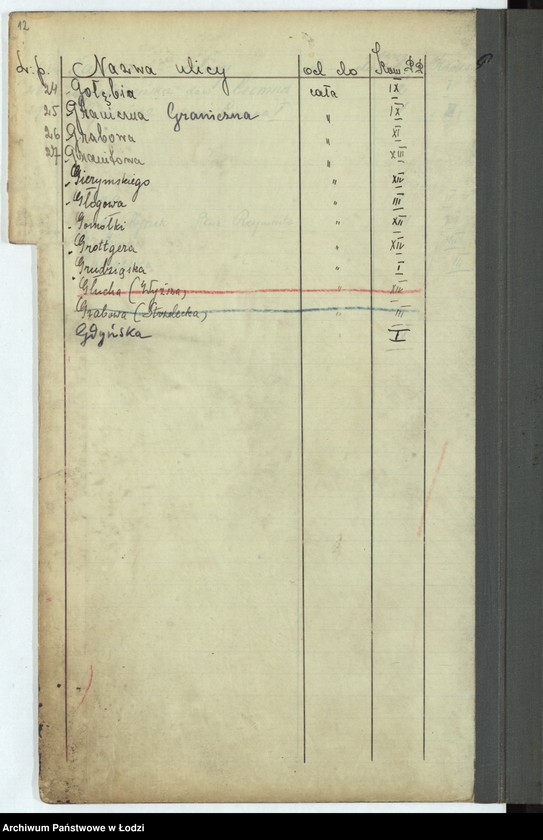 12
L.p. Nazwa ulicy od do Kom PP
24 Gołębia cała IX
25 Graniczna Graniczna " IX
26 Grabowa " XI
27 Granitowa " XIII
Gierymskiego " XIV
Głogowa " III
Gomółki " XII
Grottgera " XIV
Grudziąska " I
Głucha (Wyższa) " XIV
Grabowa (Strzelecka) " III
Gdyńska I
Archiwum Państwowe w Łodzi